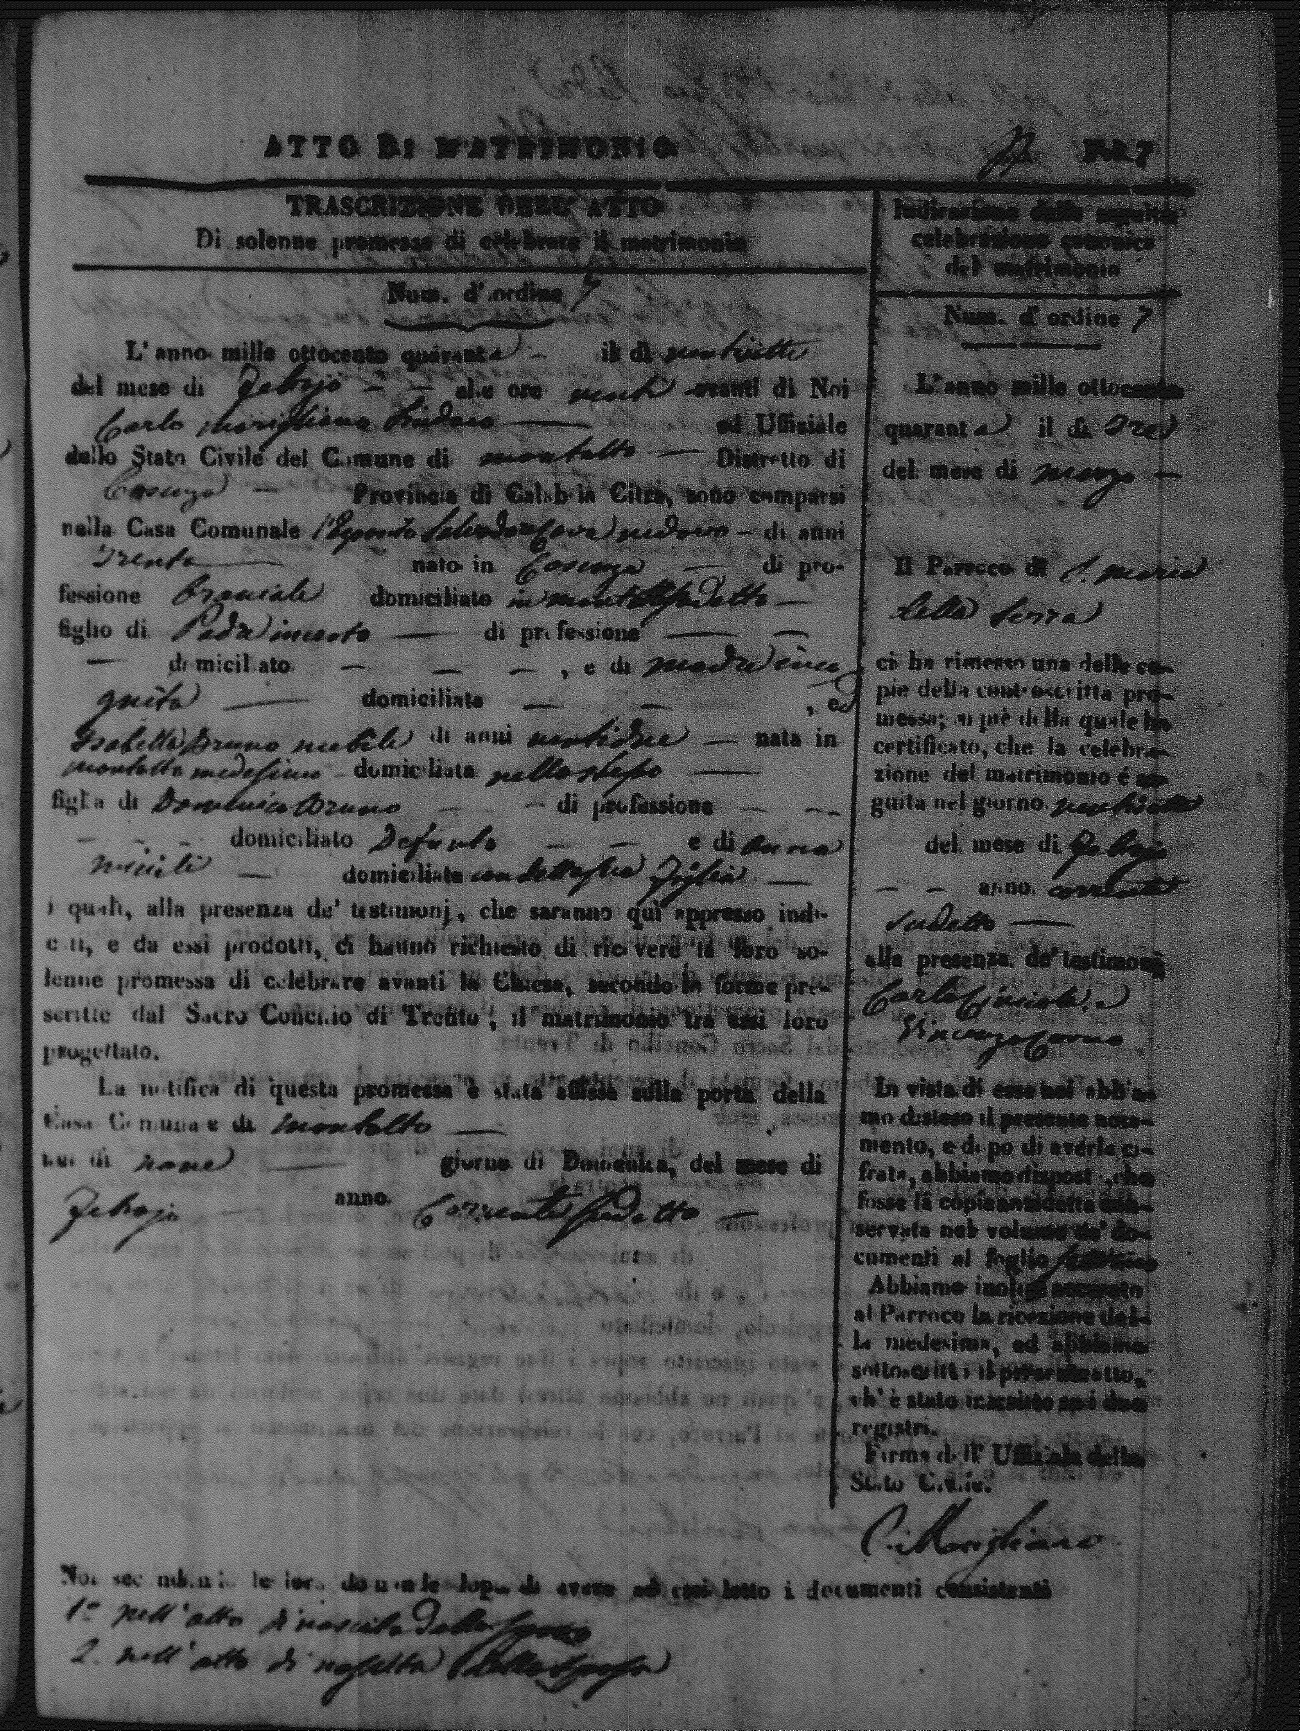 ATTO DI MATRIMONIO
TRASCRIZIONE DELL' ATTO
Di solenne promessa di celebrare il matrimonio
Num. d' ordine 7
L' anno mille ottocento quaranta il dì ventisette
del mese di Febrajo alle ore venti avanti di Noi
Carlo Marigliano Sindaco ed Uffiziale
dello Stato Civile del Comune di Montalto Distretto di
Cosenza Provincia di Calabria Citra, sono comparsi
nella Casa Comunale l'Esposito Salvadore vedovo di anni
Trenta nato in Cosenza di pro-
fessione domiciliato in Montalto sudetto
figlio di Padre incerto di professione
domiciliato , e di madre inco
gnita domiciliata , ed
Isabella Bruno nubile di anni ventidue nata in
Montalto medesimo domiciliata nello stesso
figlia di Domenico Bruno di professione
domiciliato Defunto e di Anna
domiciliata
i quali, alla presenza de' testimonj, che saranno quì appresso indi-
cati, e da essi prodotti, ci hanno richiesto di ricevere la loro so-
lenne promessa di celebrare avanti la Chiesa, secondo le forme pre-
scritte dal Sacro Concilio di Trento, il matrimonio tra essi loro
progettato.
La notifica di questa promessa è stata affissa sulla porta della
Casa Comunale di Montalto
nel dì nove giorno di Domenica, del mese di
Febrajo anno Corrente sudetto
Indicazione della seguita
celebrazione canonica
del matrimonio
Num. d' ordine 7
L' anno mille ottocento
quaranta il dì Tre
del mese di marzo
Il Parroco di S. Maria
della Serra
ci ha rimesso una delle co-
pie della controscritta pro-
messa; a piè della quale ha
certificato, che la celebra-
zione del matrimonio è se-
guita nel giorno
del mese di Febrajo
anno corrente
sudetto
alla presenza de' testimonj
Carlo e
Vincenzo
In vista di essa noi abbia-
mo disteso il presente noto-
mento, e dopo di averla ci-
frata, abbiamo disposto, che
fosse la copia anzidetta con-
servata nel volume de' do-
cumenti al foglio
Abbiamo inoltre accusato
al Parroco la ricezione del-
la medesima, ed abbiamo
sottoscritto il presente atto,
ch' è stato inscritto sui due
registri.
Firma dell' Uffiziale dello
Stato Civile.
C. Marigliano
Noi secondando le loro domande dopo di avere ad essi letto i documenti consistenti
1° nell'atto di nascita dello sposo
2. nell'atto di nascita della sposa